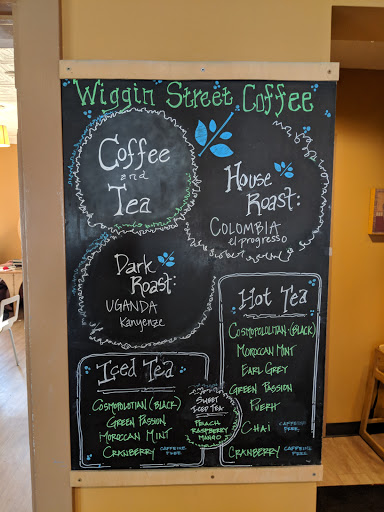 Wiggin Street Coffee
Coffee
and
Tea
House
Roast:
COLOMBIA
el progreso
Dark
Roast:
UGANDA
Kanyenze
Hot Tea
COSMOPOLOLITAN (BLACK)
MOROCCAN MINT
EARL GREY
GREEN PASSION
PUERH
CHAI CAFFEINE FREE
CRANBERRY CAFFEINE FREE
Iced Tea
COSMOPOLOTIAN (BLACK)
GREEN PASSION
MOROCCAN MINT
CRANBERRY CAFFEINE FREE
SWEET
ICED TEA
PEACH
RASPBERRY
MANGO